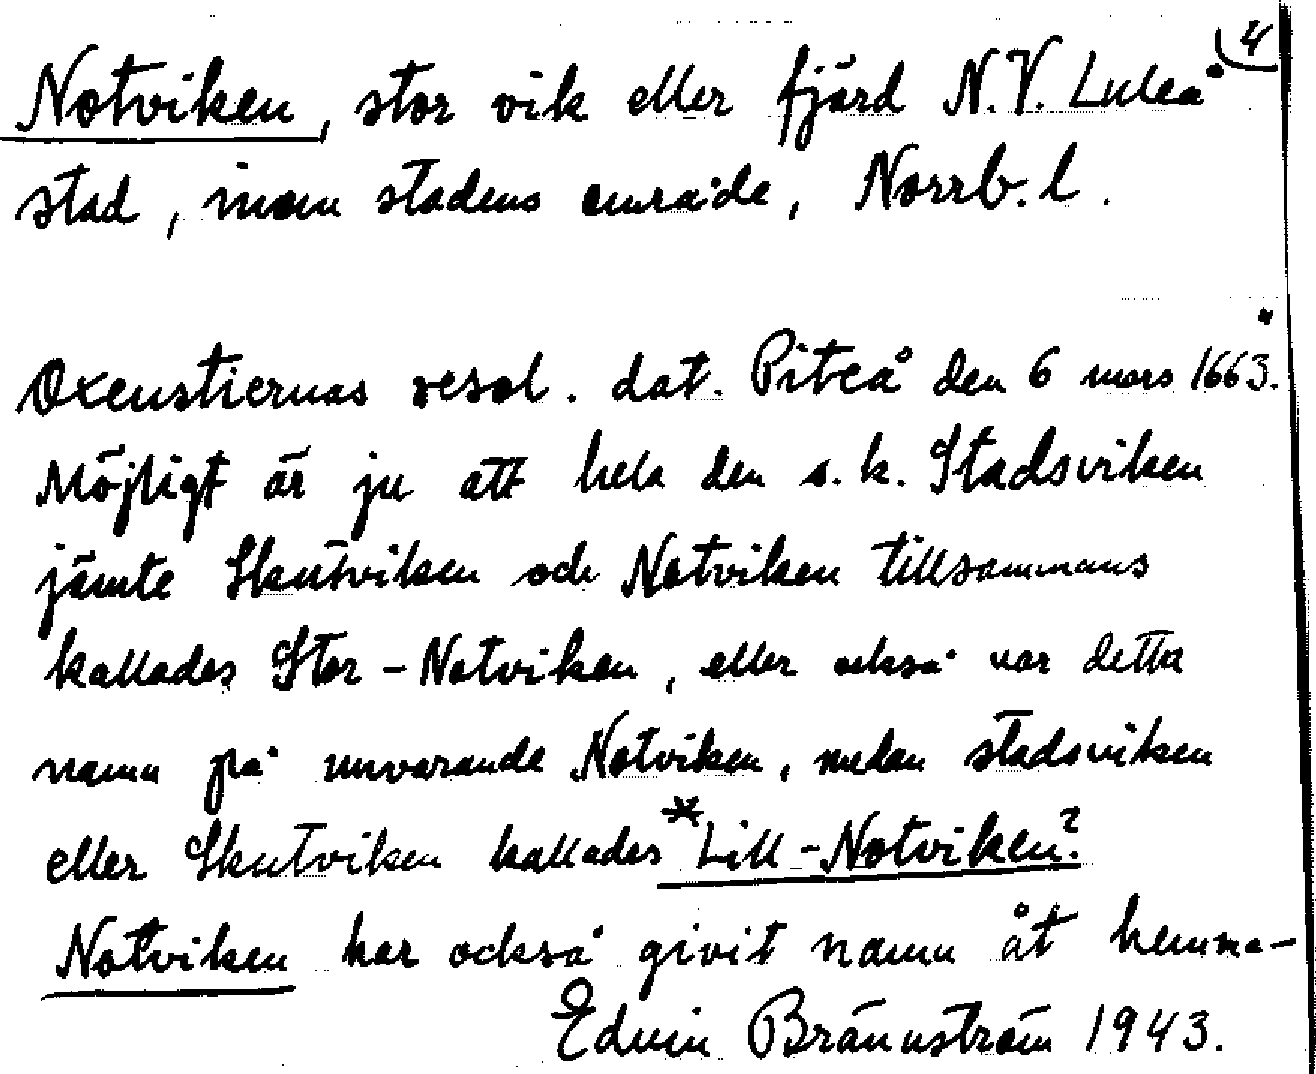 4
Notviken, stor vik eller fjärd N.V. Luleå
stad, inom stadens område, Norrb. l.
Oxenstiernas resol. dat. Piteå den 6 mars 1663."
Möjligt är ju att hela den s.k. Stadsviken
jämte Skutviken och Notviken tillsammans
kallades Stor-Notviken, eller också var detta
namn på nuvarande Notviken, medan stadsviken
eller Skutviken kallades *Lill-Notviken?
Notviken har också givit namn åt hemma-
Edvin Brännström 1943.